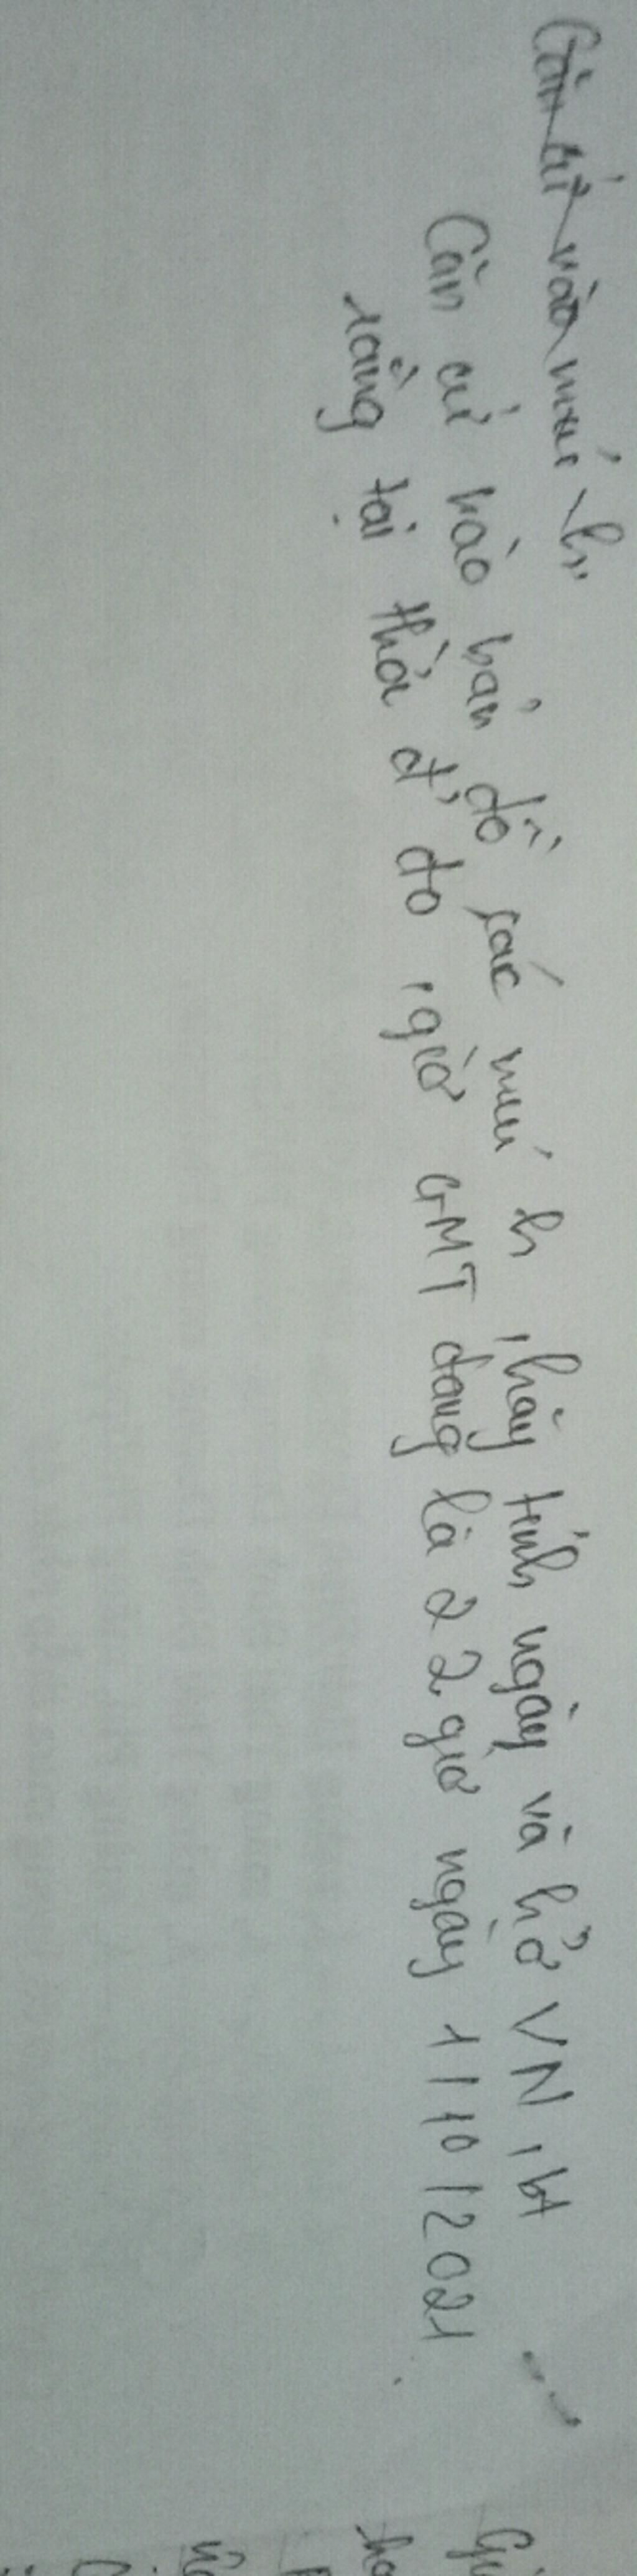 Căn cứ vào múi h
Căn cứ vào bản đồ các múi h, hãy tính ngày và h ở VN, bt
rằng tại thời đ' đo, giờ GMT đang là 22 giờ ngày 1/10/2021